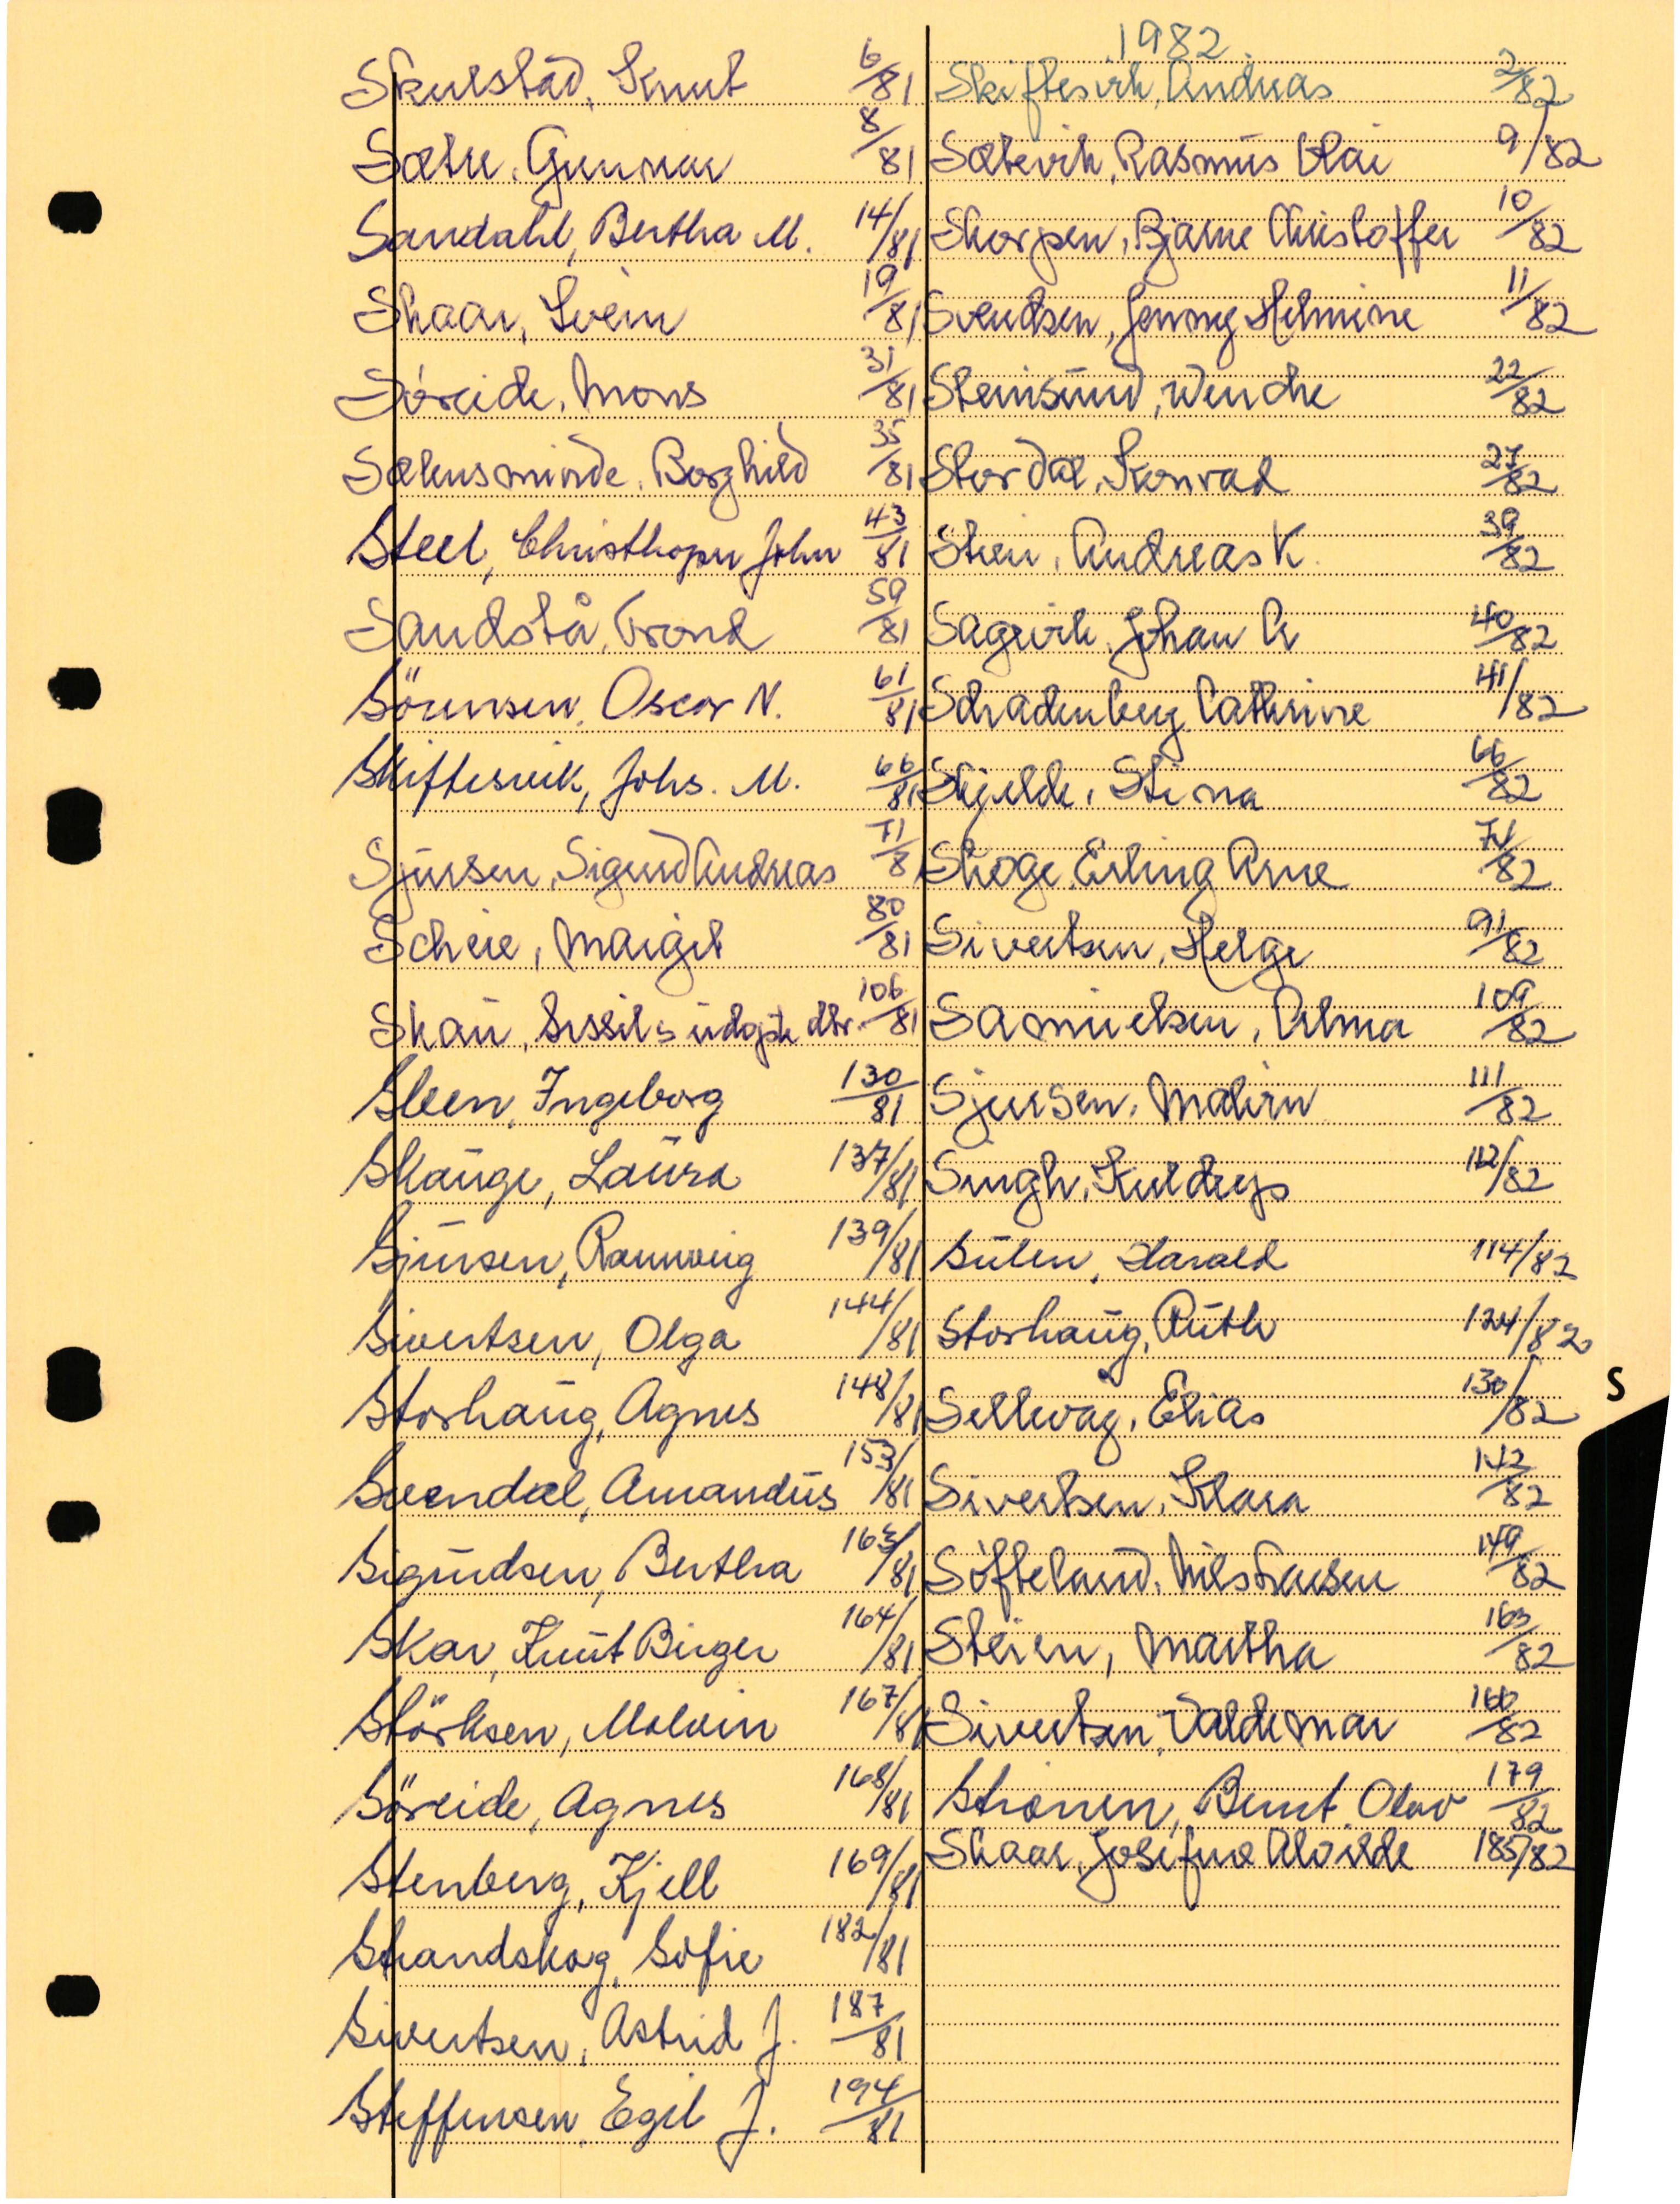 Skulstad, Knut 6/81
Sætre, Gunnar 8/81
Sandahl, Bertha M. 14/81
Skaar, Svein 19/81
Söreide, Mons 31/81
Sælensminde, Borghild 35/81
Steel, Christhoper John 43/81
Sandstå, Trond 59/81
Sörensen, Oscar N. 61/81
Skiftesvik, Johs. M. 66/81
Sjursen, Sigurd Andreas 71/81
Scheie, Margit 80/81
Skau, Sissils udøpte dtr. 106/81
Steen, Ingeborg 130/81
Skauge, Laura 137/81
Sjursen, Rannveig 139/81
Sivertsen, Olga 144/81
Storhaug, Agnes 148/81
Svendal, Amandus 153/81
Sigundsen, Bertha 163/81
Skar, Knut Birger 164/81
Störksen, Malvin 167/81
Söreide, Agnes 168/81
Stenberg, Kjell 169/81
Strandskog, Sofie 182/81
Sivertsen, Astrid J. 187/81
Steffensen, Egil J. 194/81
1982
Skiftesvik, Andreas 2/82
Sætervik, Rasmus 9/82
Skorpen, Bjarne Christoffer 10/82
Svendsen, Jenny Helmine 11/82
Steinsund, Wenche 22/82
Stordal, Konrad 27/82
Andreas K. 39/82
Sagvik, Johan A 40/82
Schadenberg Cathrine 41/82
Skjelde, Stina 66/82
Skoge, Erling Arne 74/82
Sivertsen, Helge 91/82
Samuelsen, Alma 109/82
Sjursen, Malvin 111/82
Singh, 112/82
Sulen, Harald 114/82
Storhaug, Ruth 124/82
Sellevåg, Elias 130/82
Sivertsen, Klara 142/82
Söfteland, Nils 149/82
Steien, Martha 163/82
Sivertsen, Valdemar 166/82
Strönen, Bernt Olav 179/82
Skaar, Josefine Alvilde 185/82
S